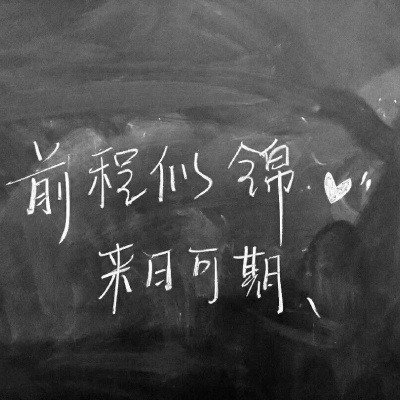 前程似锦
来日可期、